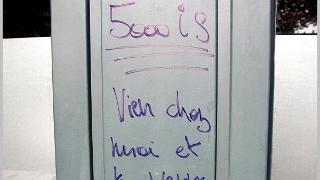 5000 is
Vien chez
moi et